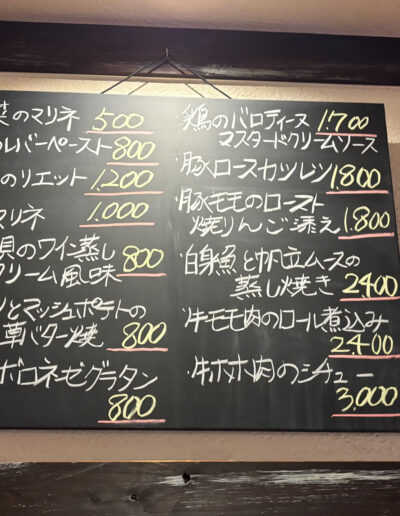 菜のマリネ 500
レバーペースト 800
のリエット 1.200
マリネ 1.000
貝のワイン蒸し
クリーム風味 800
とマッシュポテトの
草バター焼 800
ボロネーゼグラタン
800
鶏のバロティーヌ 1.700
マスタードクリームソース
・豚ロースカツレツ
1.800
・豚モモのロースト
焼りんご添え 1.800
・白身魚と帆立ムースの
蒸し焼き 2.400
・牛モモ肉のロール煮込み
2.400
・牛ホホ肉のシチュー
3.000